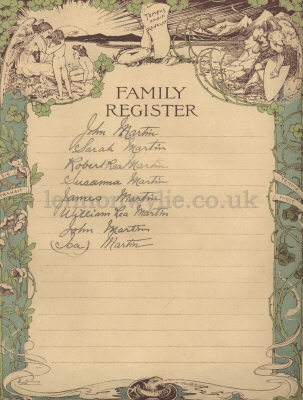 Tempus
FAMILY
REGISTER
John Martin
Sarah Martin
Robert Rea Martin
Susanna Martin
James Martin
William Rea Martin
John Martin
(Isa) Martin
lennonwylie.co.uk